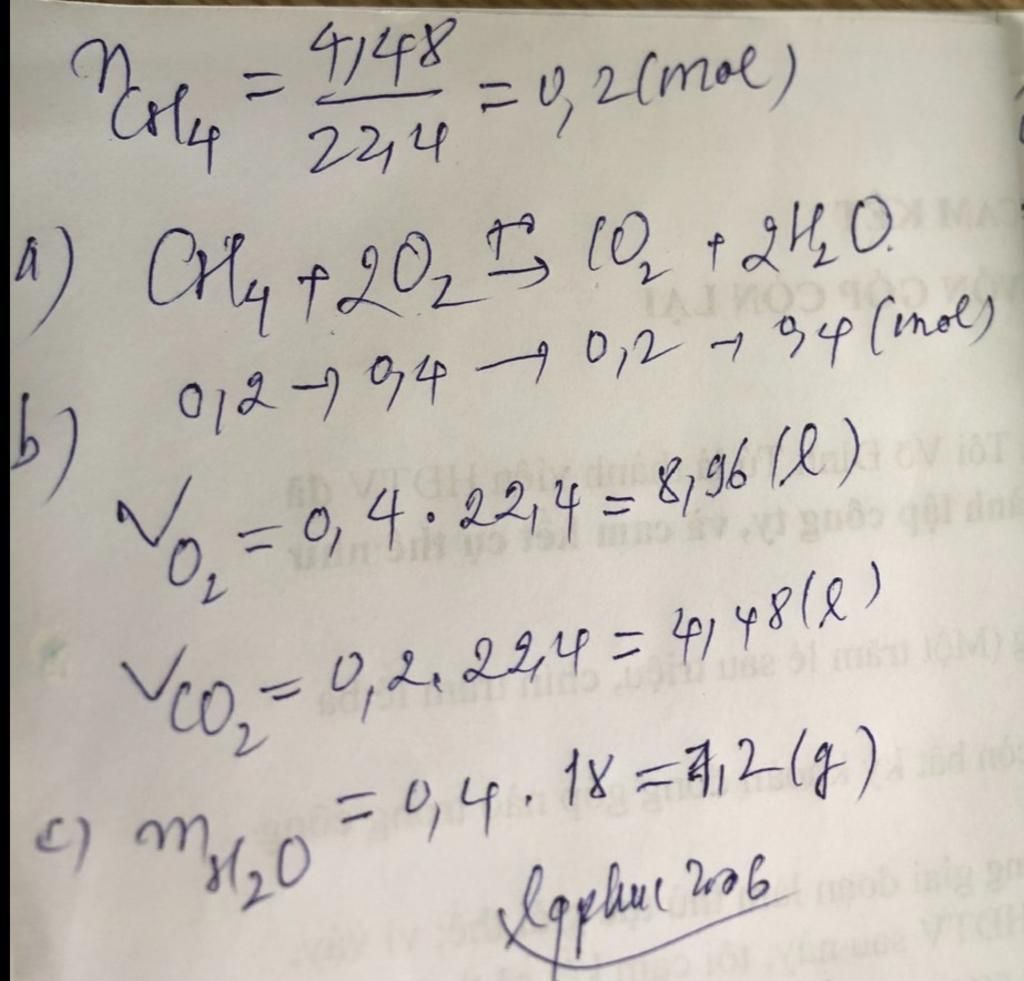 nCH4 = 4,48/22,4 = 0,2 (mol)
a) CH4 + 2O2 t° → CO2 + 2H2O.
0,2 → 0,4 → 0,2 → 0,4 (mol)
b)
VO2 = 0,4 . 22,4 = 8,96 (l)
VCO2 = 0,2 . 22,4 = 4,48 (l)
c) mH2O = 0,4 . 18 = 7,2 (g)
lqphuc2006